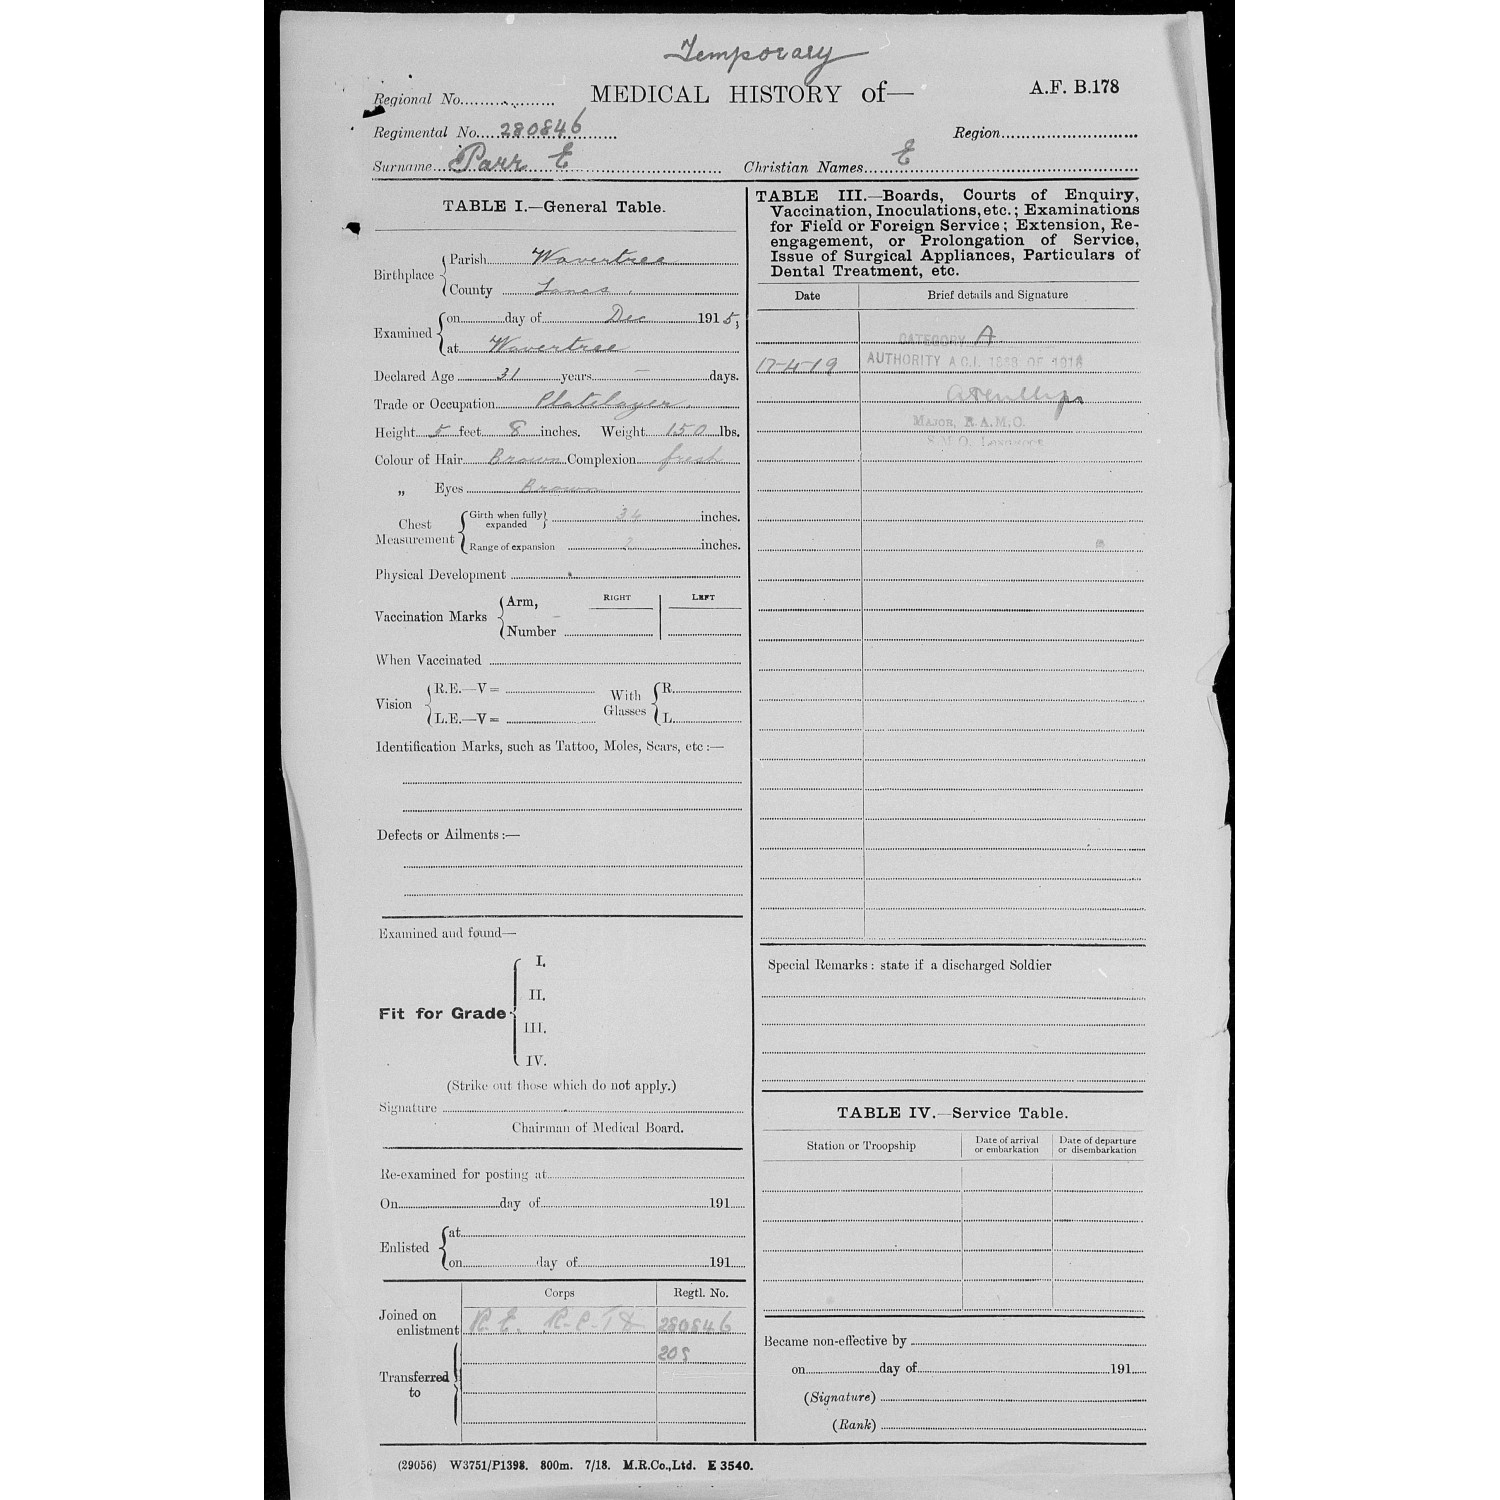 Temporary
MEDICAL HISTORY of—
A.F. B.178
Regional No.
Regimental No. 280846
Region
Surname Parr E
Christian Names E
TABLE I.—General Table.
Birthplace
Parish Wavertree
County Lancs.
Examined
on day of Dec 1915;
at Wavertree
Declared Age 31 years — days.
Trade or Occupation Platelayer.
Height 5 feet 8 inches. Weight 150 lbs.
Colour of Hair Brown Complexion fresh
„ Eyes Brown
Chest Measurement
Girth when fully expanded 34 inches.
Range of expansion 2 inches.
Physical Development
Vaccination Marks
Arm, RIGHT LEFT
Number
When Vaccinated
Vision
R.E.—V=
L.E.—V=
With Glasses
R.
L.
Identification Marks, such as Tattoo, Moles, Scars, etc:—
Defects or Ailments:—
Examined and found—
Fit for Grade
I.
II.
III.
IV.
(Strike out those which do not apply.)
Signature
Chairman of Medical Board.
Re-examined for posting at
On day of 191
Enlisted
at
on day of 191
Corps Regtl. No.
Joined on enlistment R.E. 280846
205
Transferred to
TABLE III.—Boards, Courts of Enquiry,
Vaccination, Inoculations, etc.; Examinations
for Field or Foreign Service; Extension, Re-
engagement, or Prolongation of Service,
Issue of Surgical Appliances, Particulars of
Dental Treatment, etc.
Date Brief details and Signature
CATEGORY A
17-4-19 AUTHORITY A.C.I. OF 1918
MAJOR, R.A.M.C.
S.M.O.
Special Remarks: state if a discharged Soldier
TABLE IV.—Service Table.
Station or Troopship
Date of arrival or embarkation
Date of departure or disembarkation
Became non-effective by
on day of 191
(Signature)
(Rank)
(29056) W3751/P1398. 800m. 7/18. M.R.Co.,Ltd. E 3540.